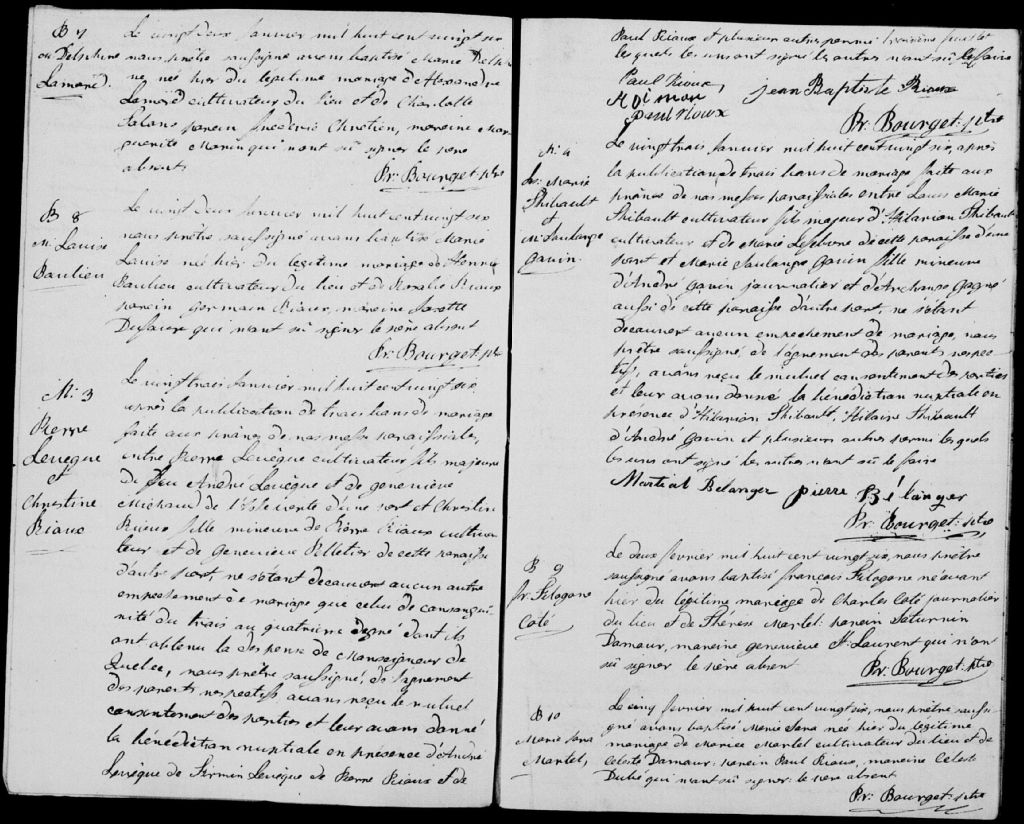 B 7
ou Delphine
Lamare
Le vingt deux Janvier mil huit cent vingt six
nous prêtre soussigné avons baptisé Marie Delph
ne née hier du légitime mariage d'Alexandre
Lamare cultivateur du lieu et de Charlotte
parain frederic Chretien, maraine Mar
guerite Morin qui n'ont sû signer le père
absent
Pr: Bourget: ptre
B 8
M: Louise
Baulieu
Le vingt deux Janvier mil huit cent vingt six
nous prêtre soussigné avons baptisé Marie
Louise née hier du légitime mariage de Henri
Baulieu cultivateur du lieu et de Rosalie Riaux
parain germain Riaux, maraine Josette
qui n'ont sû signer le père absent
Pr: Bourget: ptre
M: 3
Pierre
Levêque
et
Christine
Riaux
Le vingt trois Janvier mil huit cent vingt six
après la publication de trois bans de mariage
faite aux prônes de nos messes paroissiales,
entre Pierre Levêque cultivateur fils majeur
de feu André Levêque et de geneviève
Michaud de l'Isle verte d'une part et Christin
Riaux fille mineure de Pierre Riaux cultiva
teur et de Geneviève Pelletier de cette paroisse
d'autre part, ne s'étant decouvert aucun autre
empechement à ce mariage que celui de consangui
nité du trois au quatrieme degré dont ils
ont obtenu la dispense de Monseigneur de
Quebec, nous prêtre soussigné, de l'agrement
des parents respectifs avons reçu le mutuel
consentement des parties et leur avons donné
la bénédiction nuptiale en présence d'André
Levêque de Firmin Levêque de Pierre Riaux et de
Paul Riaux et plusieurs autres parmi
lesquels les uns ont signé les autres n'ont sû le faire
Paul Rioux,
jean Baptiste Rioux
paul rioux
Pr: Bourget: ptre
M: 4
Ls: Marie
Thibault
et
M: Soulange
Gauin
Le vingt trois Janvier mil huit cent vingt six, après
la publication de trois bans de mariage faite aux
prônes de nos messes paroissiales entre Louis Marie
Thibault cultivateur fils majeur d'Hilarion Thibault
cultivateur et de Marie Lefebvre de cette paroisse d'une
part et Marie Soulange Gauin fille mineure
d'André Gauin journalier et d'Archange Gagné
aussi de cette paroisse d'autre part, ne s'étant
decouvert aucun empechement de mariage, nous
prêtre soussigné, de l'agrement des parents respec
tifs, avons reçu le mutuel consentement des parties
et leur avons donné la bénédiction nuptiale en
présence d'Hilarion Thibault, Hilaire Thibault
d'André Gauin et plusieurs autres parmi lesquels
les uns ont signé les autres n'ont sû le faire
Martial Belanger pierre Bélanger
Pr: Bourget: ptre
B 9
fr: Pilogone
Coté
Le deux fevrier mil huit cent vingt six, nous prêtre
soussigné avons baptisé françois Pilogone né avant
hier du légitime mariage de Charles Coté journalier
du lieu et de Thérèse Martel: parain Saturnin
Damour, maraine geneviève St Laurent qui n'ont
sû signer le père absent
Pr: Bourget: ptre
B 10
Marie
Martel,
Le cinq fevrier mil huit cent vingt six, nous prêtre soussi
gné avons baptisé Marie née hier du légitime
mariage de Martel cultivateur du lieu et de
Celeste Damour: parain Paul Riaux, maraine Celeste
Dubé qui n'ont sû signer: le père absent
Pr: Bourget: ptre